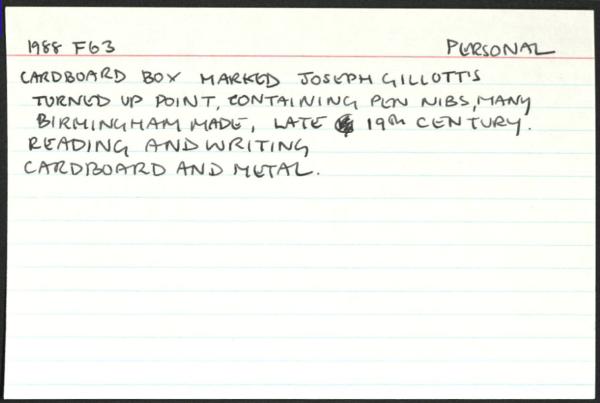 1988 F63 PERSONAL
CARDBOARD BOX MARKED JOSEPH GILLOTT'S
TURNED UP POINT, CONTAINING PEN NIBS, MANY
BIRMINGHAM MADE, LATE 19th CENTURY.
READING AND WRITING
CARDBOARD AND METAL.